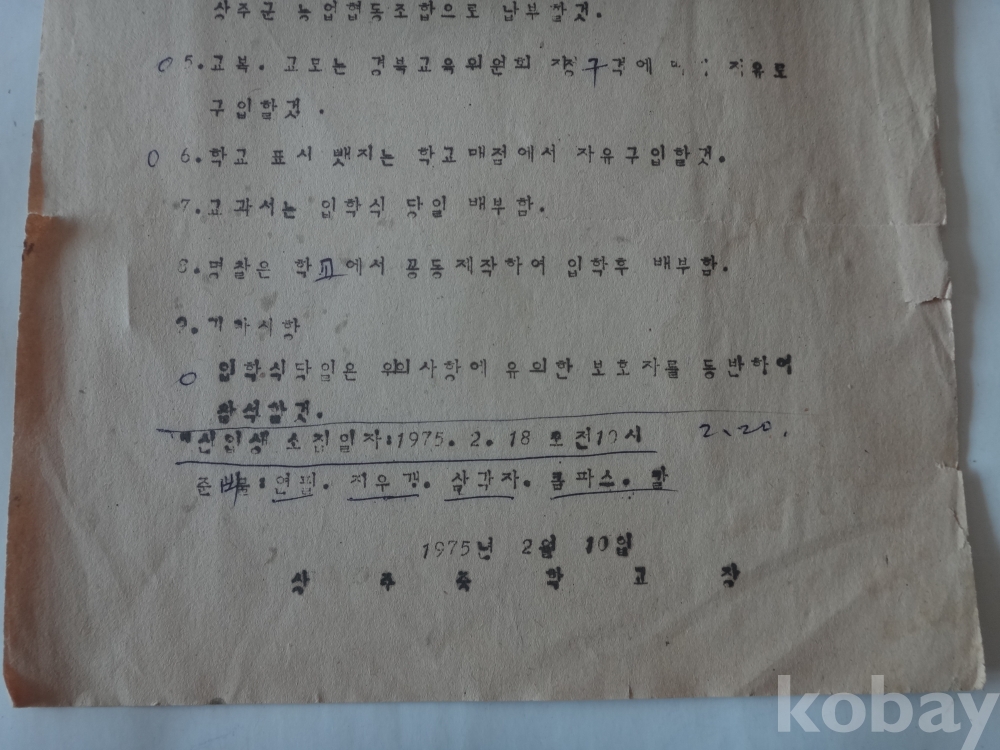 상주군 농업협동조합으로 납부할것.
5.교복. 교모는 경북교육위원회 구격에 자유로
구입할것.
6.학교 표시 뺏지는 학교매점에서 자유구입할것.
7.교과서는 입학식 당일 배부함.
8.명찰은 학교에서 공동제작하여 입학후 배부함.
9.기타사항
입학식당일은 위의사항에 유의한 보호자를 동반하여
참석할것.
*신입생 소집일자:1975. 2. 18 오전10시 2.20.
준비물:연필. 지우개. 삼각자. 콤파스.
1975년 2월 10일
상 주 중 학 교 장
kobay